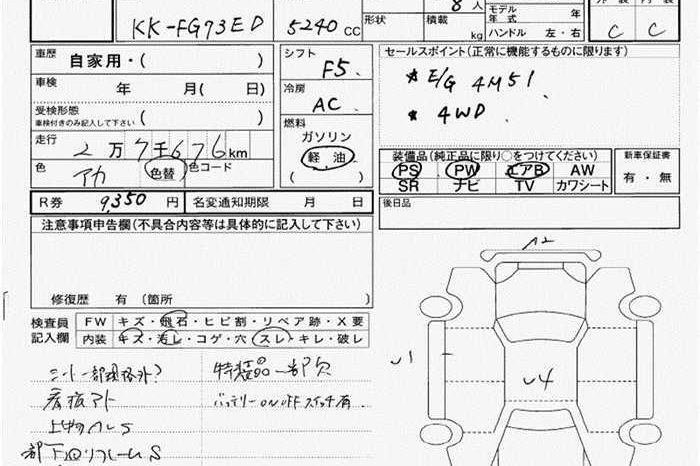 形状 積載 8 人 kg
モデル年式 年
ハンドル 左・右
C C
KK-FG73ED 5240 CC
車歴 自家用・( )
車検 年 月( 日)
受検形態 ( )
車検付きのみ記入して下さい
走行 2万7千676km
色 アカ 色替 色コード
シフト F5
冷房 AC
燃料 ガソリン
軽油
( )
セールスポイント(正常に機能するものに限ります)
* E/G 4M51
* 4WD
装備品(純正品に限り○をつけてください)
PS PW エアB AW
SR ナビ TV カワシート
新車保証書
有・無
R券 9,350 円 名変通知期限 月 日
後日品
注意事項申告欄(不具合内容等は具体的に記入して下さい)
修復歴 有(箇所 )
検査員記入欄
FW キズ・飛石・ヒビ割・リペア跡・X要
内装 キズ・汚レ・コゲ・穴・スレ・キレ・破レ
シート一部規格外? 特装品一部欠
看板アト バッテリーON OFFスイッチ有
下回りフレームS
A2
U1
U4